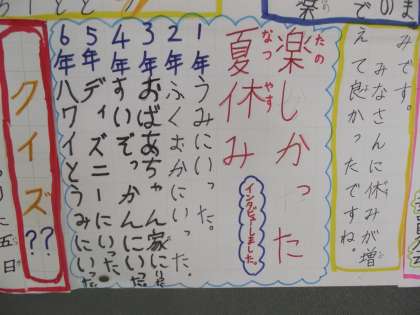 みです。
みなさんに休みが増
えて良かったですね。
楽しかった
たの
夏休み
なつやす
インタビューしました。
1年うみにいった。
2年ふくおかにいった.
3年おばあちゃん家にいった。
4年すいぞっかんにいった
5年ディズニーにいった。
6年ハワイとうみにいった。
クイズ??